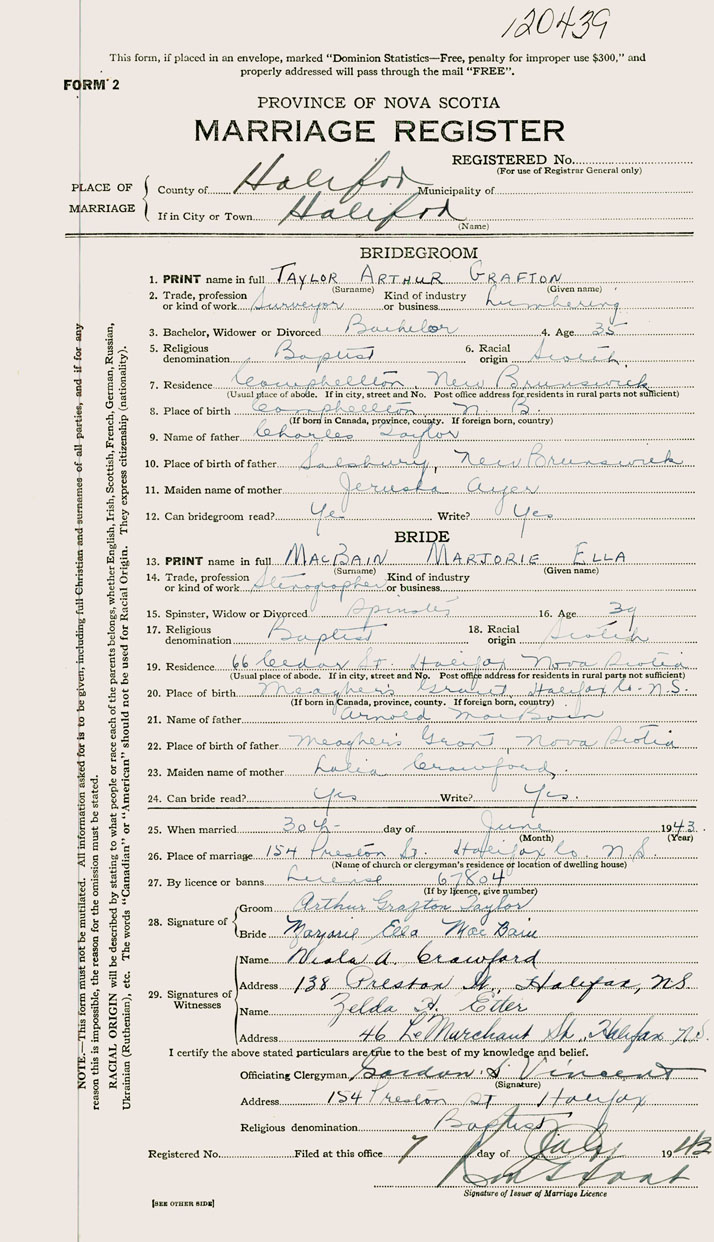 120439
This form, if placed in an envelope, marked "Dominion Statistics—Free, penalty for improper use $300," and
properly addressed will pass through the mail "FREE".
FORM 2
PROVINCE OF NOVA SCOTIA
MARRIAGE REGISTER
REGISTERED No.
(For use of Registrar General only)
PLACE OF MARRIAGE
County of Halifax Municipality of
If in City or Town Halifax
(Name)
BRIDEGROOM
1. PRINT name in full TAYLOR ARTHUR GRAFTON
(Surname) (Given name)
2. Trade, profession or kind of work Surveyor Kind of industry or business Lumbering
3. Bachelor, Widower or Divorced Bachelor 4. Age 35
5. Religious denomination Baptist 6. Racial origin Scotch
7. Residence Campbellton, New Brunswick
(Usual place of abode. If in city, street and No. Post office address for residents in rural parts not sufficient)
8. Place of birth Campbellton N. B.
(If born in Canada, province, county. If foreign born, country)
9. Name of father Charles Taylor
10. Place of birth of father Salsbury, New Brunswick
11. Maiden name of mother Jerusha Ayer
12. Can bridegroom read? Yes Write? Yes
BRIDE
13. PRINT name in full MACBAIN MARJORIE ELLA
(Surname) (Given name)
14. Trade, profession or kind of work Stenographer Kind of industry or business
15. Spinster, Widow or Divorced Spinster 16. Age 39
17. Religious denomination Baptist 18. Racial origin Scotch
19. Residence 66 Cedar St. Halifax Nova Scotia
(Usual place of abode. If in city, street and No. Post office address for residents in rural parts not sufficient)
20. Place of birth Meagher's Grant, Halifax Co. N.S.
(If born in Canada, province, county. If foreign born, country)
21. Name of father Arnold MacBain
22. Place of birth of father Meagher's Grant, Nova Scotia
23. Maiden name of mother Lalia Crawford
24. Can bride read? Yes Write? Yes.
25. When married 30th day of June 1943
(Month) (Year)
26. Place of marriage 154 Preston St. Halifax Co. N.S.
(Name of church or clergyman's residence or location of dwelling house)
27. By licence or banns License 67804
(If by licence, give number)
28. Signature of
Groom Arthur Grafton Taylor
Bride Marjorie Ella MacBain
29. Signatures of Witnesses
Name Viola A. Crawford
Address 138 Preston St., Halifax, NS
Name Zelda H. Etter
Address 46 LeMarchant St., Halifax N.S.
I certify the above stated particulars are true to the best of my knowledge and belief.
Officiating Clergyman Gordon S. Vincent
(Signature)
Address 154 Preston St Halifax
Religious denomination Baptist
Registered No. Filed at this office 7 day of July 1943
Signature of Issuer of Marriage Licence
[SEE OTHER SIDE]
NOTE.—This form must not be mutilated. All information asked for is to be given, including full Christian and surnames of all parties, and if for any
reason this is impossible, the reason for the omission must be stated.
RACIAL ORIGIN will be described by stating to what people or race each of the parents belongs, whether English, Irish, Scottish, French, German, Russian,
Ukrainian (Ruthenian), etc. The words "Canadian" or "American" should not be used for Racial Origin. They express citizenship (nationality).